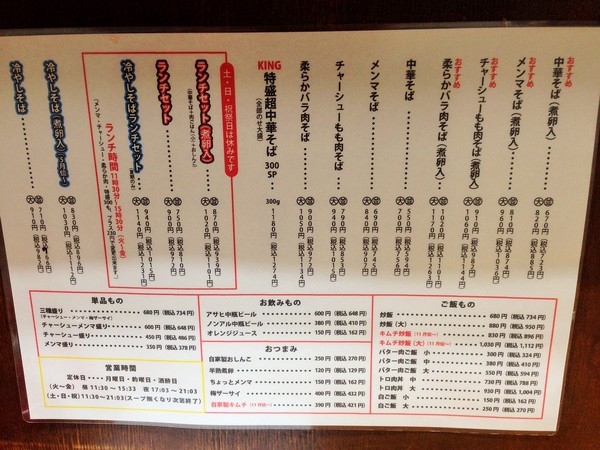 おすすめ
中華そば(煮卵入)
並 670円(税込723円)
大 820円(税込885円)
おすすめ
メンマそば(煮卵入)
並 810円(税込874円)
おすすめ
チャーシューもも肉そば(煮卵入)
並 910円
おすすめ
柔らかバラ肉そば(煮卵入)
並 1020円(税込1101円)
大 1170円(税込1263円)
中華そば
並 550円(税込594円)
メンマそば
並 690円(税込745円)
チャーシューもも肉そば
並 790円(税込853円)
柔らかバラ肉そば
KING 特盛超中華そば 300SP
(全部のせ大盛)
300g 1180円(税込1274円)
土・日・祝祭日は休みです
ランチセット(煮卵入)
(中華そば+肉ごはん(小)+おしんこ)
並 870円(税込939円)
大 1020円(税込1101円)
ランチセット
並 750円(税込810円)
大 900円(税込972円)
冷やしそばランチセット
(夏期のみ)
並 940円(税込1015円)
大 1140円(税込1231円)
ランチ時間 11時30分~15時30分(火~金)
冷やしそば(煮卵入)(5月位~)
並 830円(税込896円)
大 1030円
冷やしそば
並 710円(税込766円)
大 910円(税込982円)
単品もの
三種盛り 680円(税込 734円)
(チャーシュー・メンマ・梅ザーサイ)
チャーシューメンマ盛り 600円(税込 648円)
チャーシュー盛り 450円(税込 486円)
メンマ盛り 350円(税込 378円)
営業時間
定休日・・・・月曜日・釣曜日・酒酔日
(火~金) 昼 11:30~15:33 夜 17:03~21:03
(土・日・祝)11:30~21:03(スープ無くなり次第終了)
お飲みもの
アサヒ中瓶ビール 600円(税込 648円)
ノンアル中瓶ビール 380円(税込 410円)
オレンジジュース 150円(税込 162円)
おつまみ
自家製おしんこ 250円(税込 270円)
半熟煮卵 120円(税込 129円)
ちょっとメンマ 150円(税込 162円)
梅ザーサイ 400円(税込 432円)
自家製キムチ(11月位~) 390円(税込 421円)
ご飯もの
炒飯 680円(税込 734円)
炒飯(大) 880円(税込 950円)
キムチ炒飯(11月位~) 830円(税込 896円)
キムチ炒飯(大)(11月位~) 1,030円(税込 1,112円)
バター肉ご飯 小 300円(税込 324円)
バター肉ご飯 中 380円(税込 410円)
バター肉ご飯 大 550円(税込 594円)
トロ肉丼 中 730円(税込 788円)
トロ肉丼 大 930円(税込 1,004円)
白ご飯 小 150円(税込 162円)
白ご飯 大 250円(税込 270円)